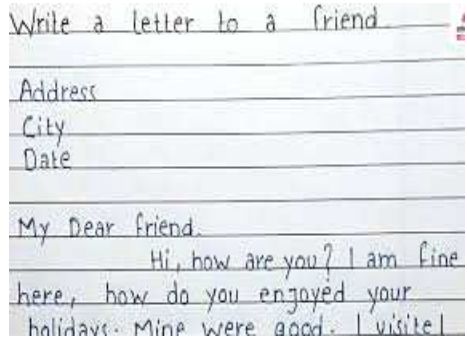 Write a letter to a friend
Address
City
Date
My Dear friend.
Hi, how are you? I am fine
here, how do you enjoyed your
holidays. Mine were good. I